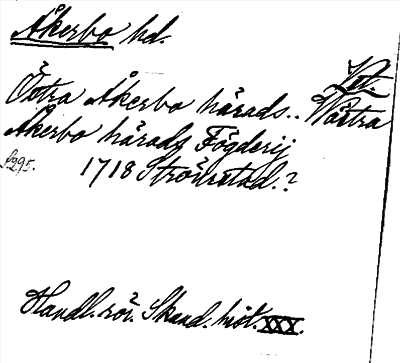 Åkerbo hd.
Vst.
Östra Åkerbo härads.. Wästra
Åkerbo härads Fögderij
S295. 1718 Strömstad.?
Handl. rör. Skand. hist. XXX.